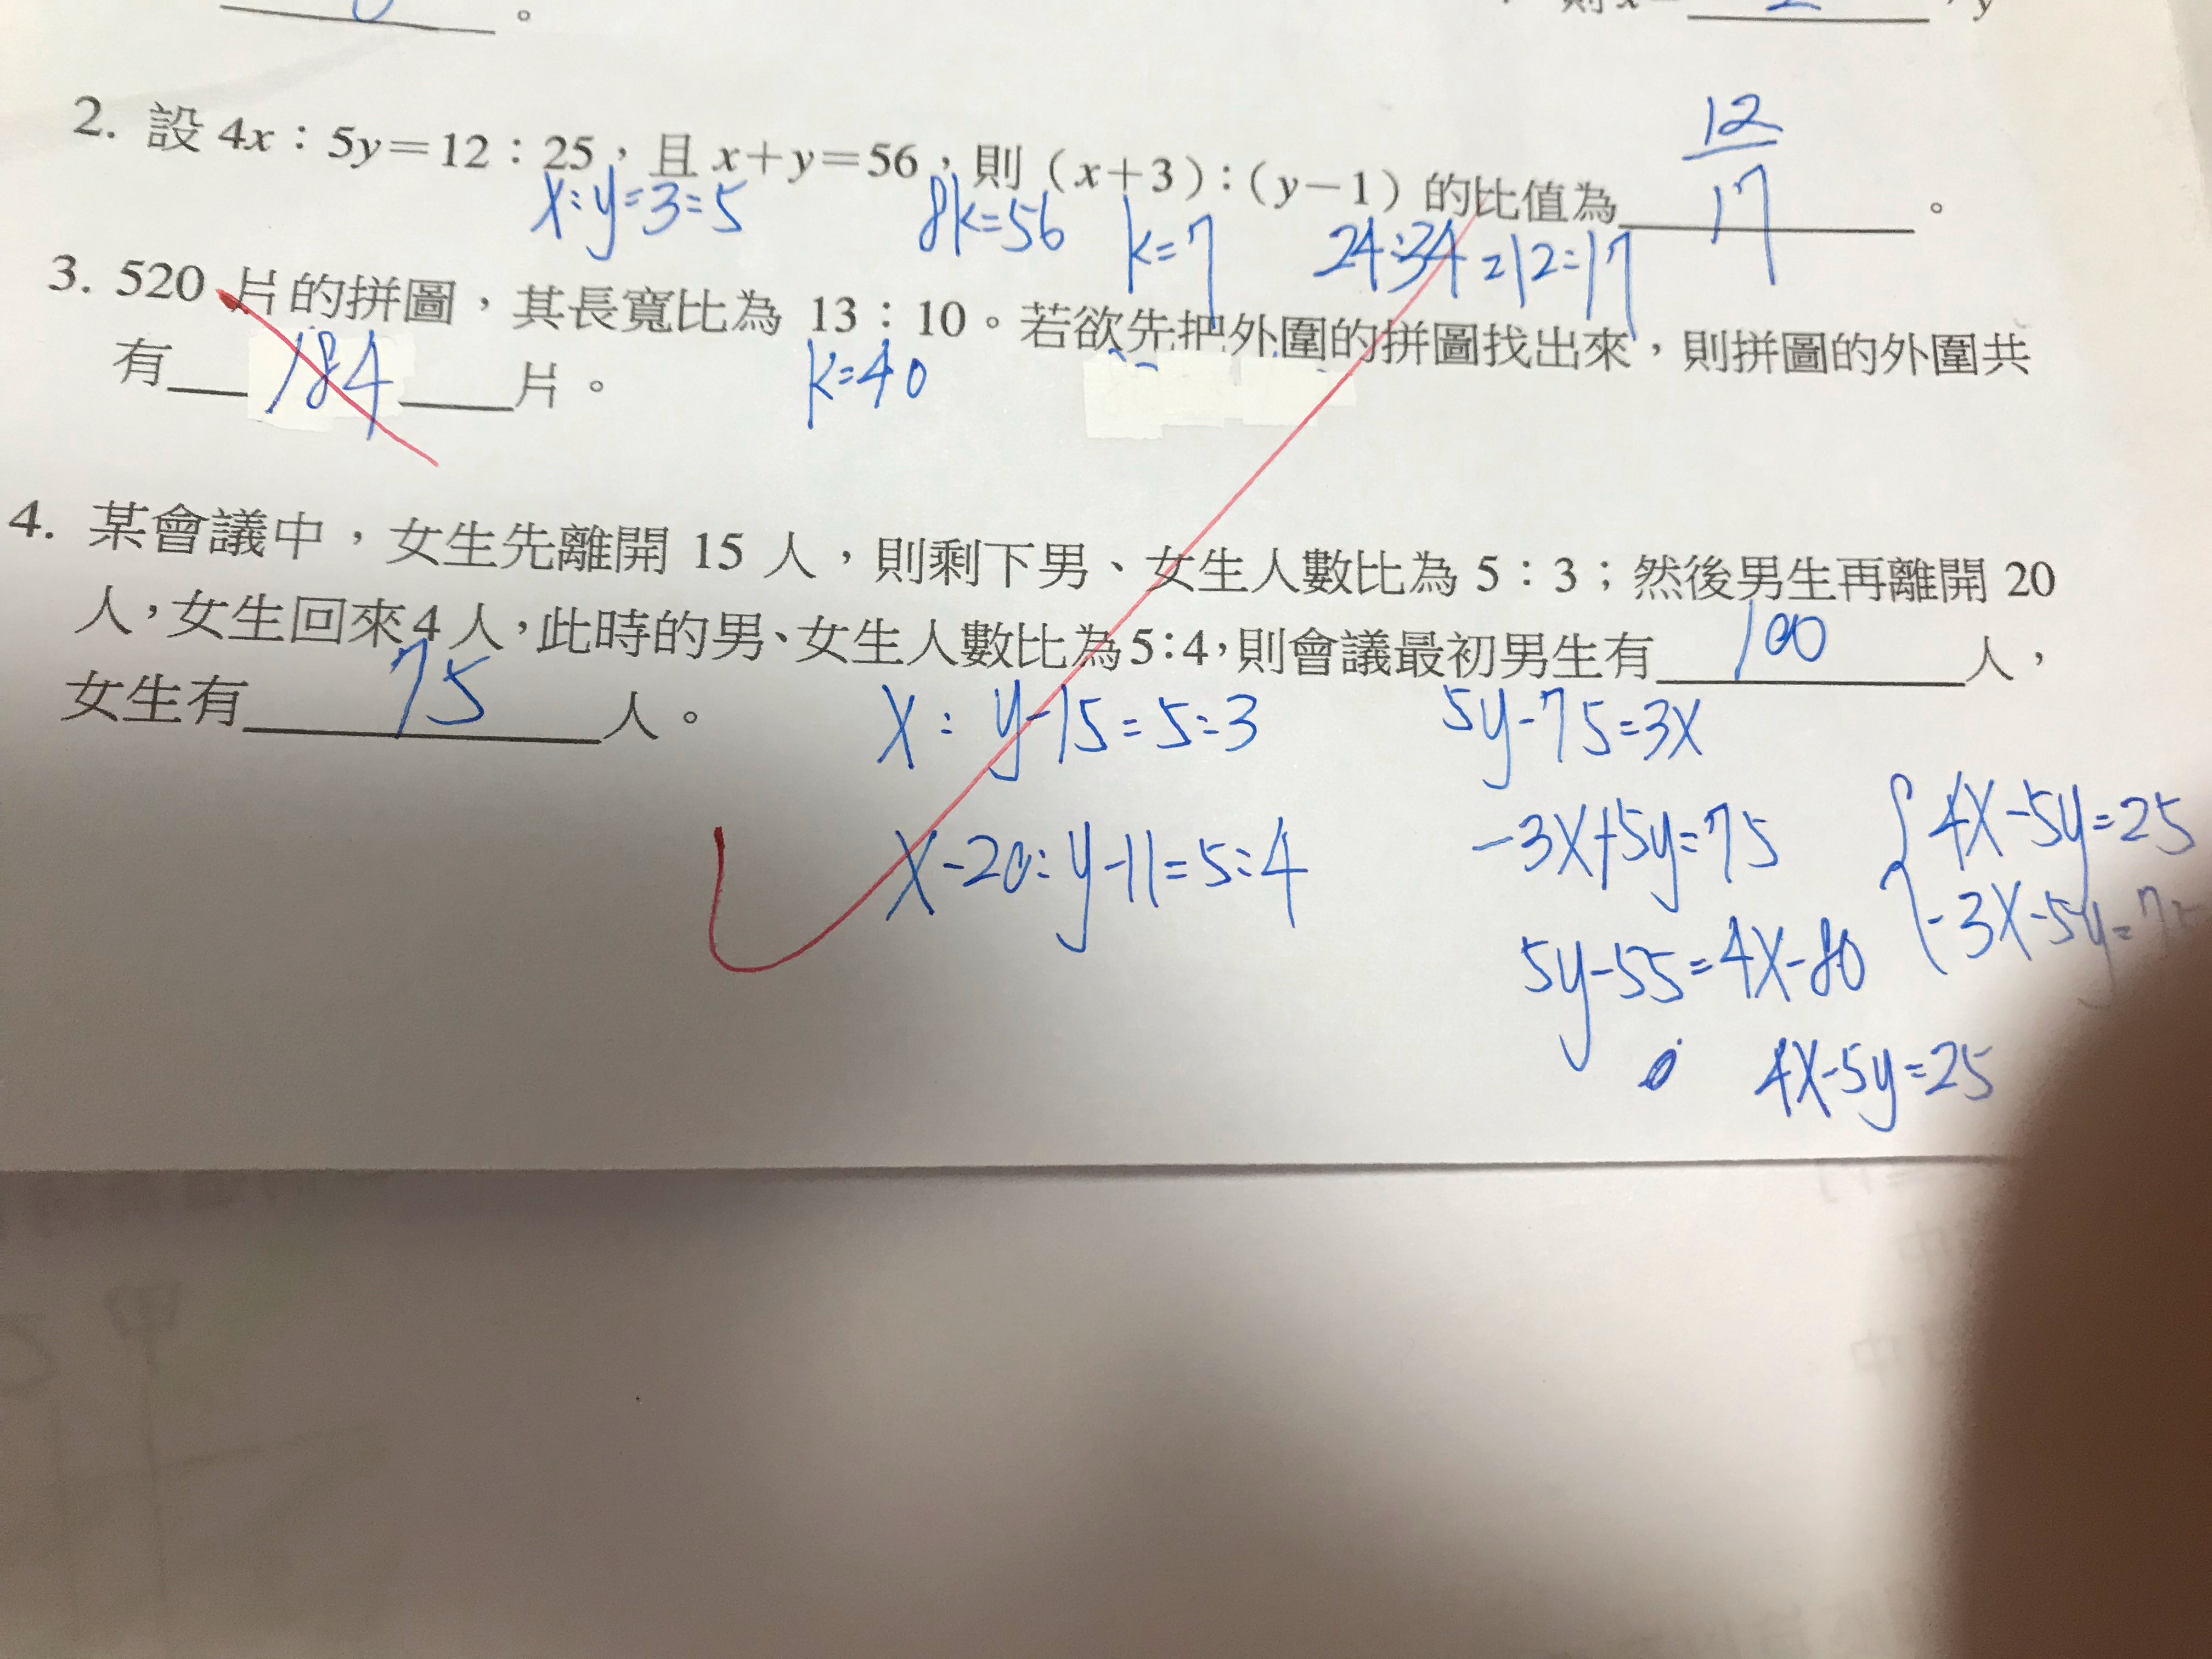 則 x＝
，y
2. 設 4x：5y＝12：25，且 x＋y＝56，則（x＋3）：（y－1）的比值為 12/17 。
x:y=3:5 8k=56 k=7 24:34=12:17
3. 520 片的拼圖，其長寬比為 13：10。若欲先把外圍的拼圖找出來，則拼圖的外圍共
有 184 片。 k=40
4. 某會議中，女生先離開 15 人，則剩下男、女生人數比為 5：3；然後男生再離開 20
人，女生回來 4 人，此時的男、女生人數比為 5：4，則會議最初男生有 100 人，
女生有 75 人。
x : y-15=5:3 5y-75=3x
x-20:y-11=5:4 -3x+5y=75 4x-5y=25
-3x-5y=75
5y-55=4x-80
4x-5y=25